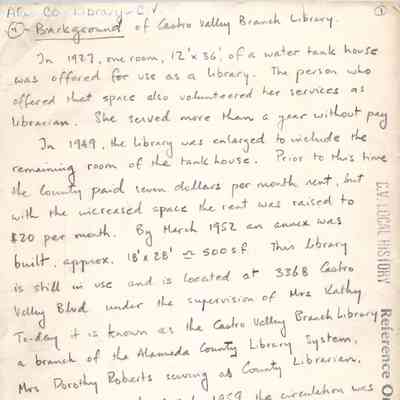 Ala Co. Library - C V
①
④ - Background of Castro Valley Branch Library.
In 1927, one room, 12' x 36', of a water tank house
was offered for use as a library. The person who
offered that space also volunteered her services as
librarian. She served more than a year without pay
In 1949, the library was enlarged to include the
remaining room of the tank house. Prior to this time
the County paid seven dollars per month rent, but
with the increased space the rent was raised to
$20 per month. By March 1952 an annex was
built, approx. 18' x 28' ≃ 500 s.f. This library
is still in use and is located at 3368 Castro
Valley Blvd. under the supervision of Mrs Kathy
To-day it is known as the Castro Valley Branch Library
a branch of the Alameda County Library System,
Mrs Dorothy Roberts serving as County Librarian.
1959 the circulation was
C.V. LOCAL HISTORY
Reference On